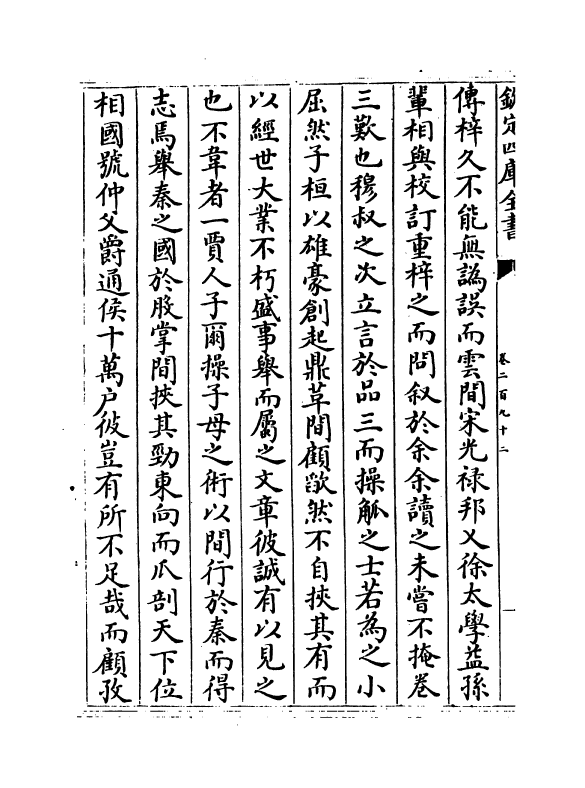 欽定四庫全書
卷二百九十二
傳梓久不能無譌誤而雲間宋光禄邦乂徐太學益孫
輩相與校訂重梓之而問叙於余余讀之未嘗不掩卷
三歎也穆叔之次立言於品三而操觚之士若為之小
屈然子桓以雄豪創起鼎革間顧歘然不自挾其有而
以經世大業不朽盛事舉而屬之文章彼誠有以見之
也不韋者一賈人子爾操子母之術以間行於秦而得
志焉舉秦之國於股掌間挾其勁東向而瓜剖天下位
相國號仲父爵通侯十萬户彼豈有所不足哉而顧孜